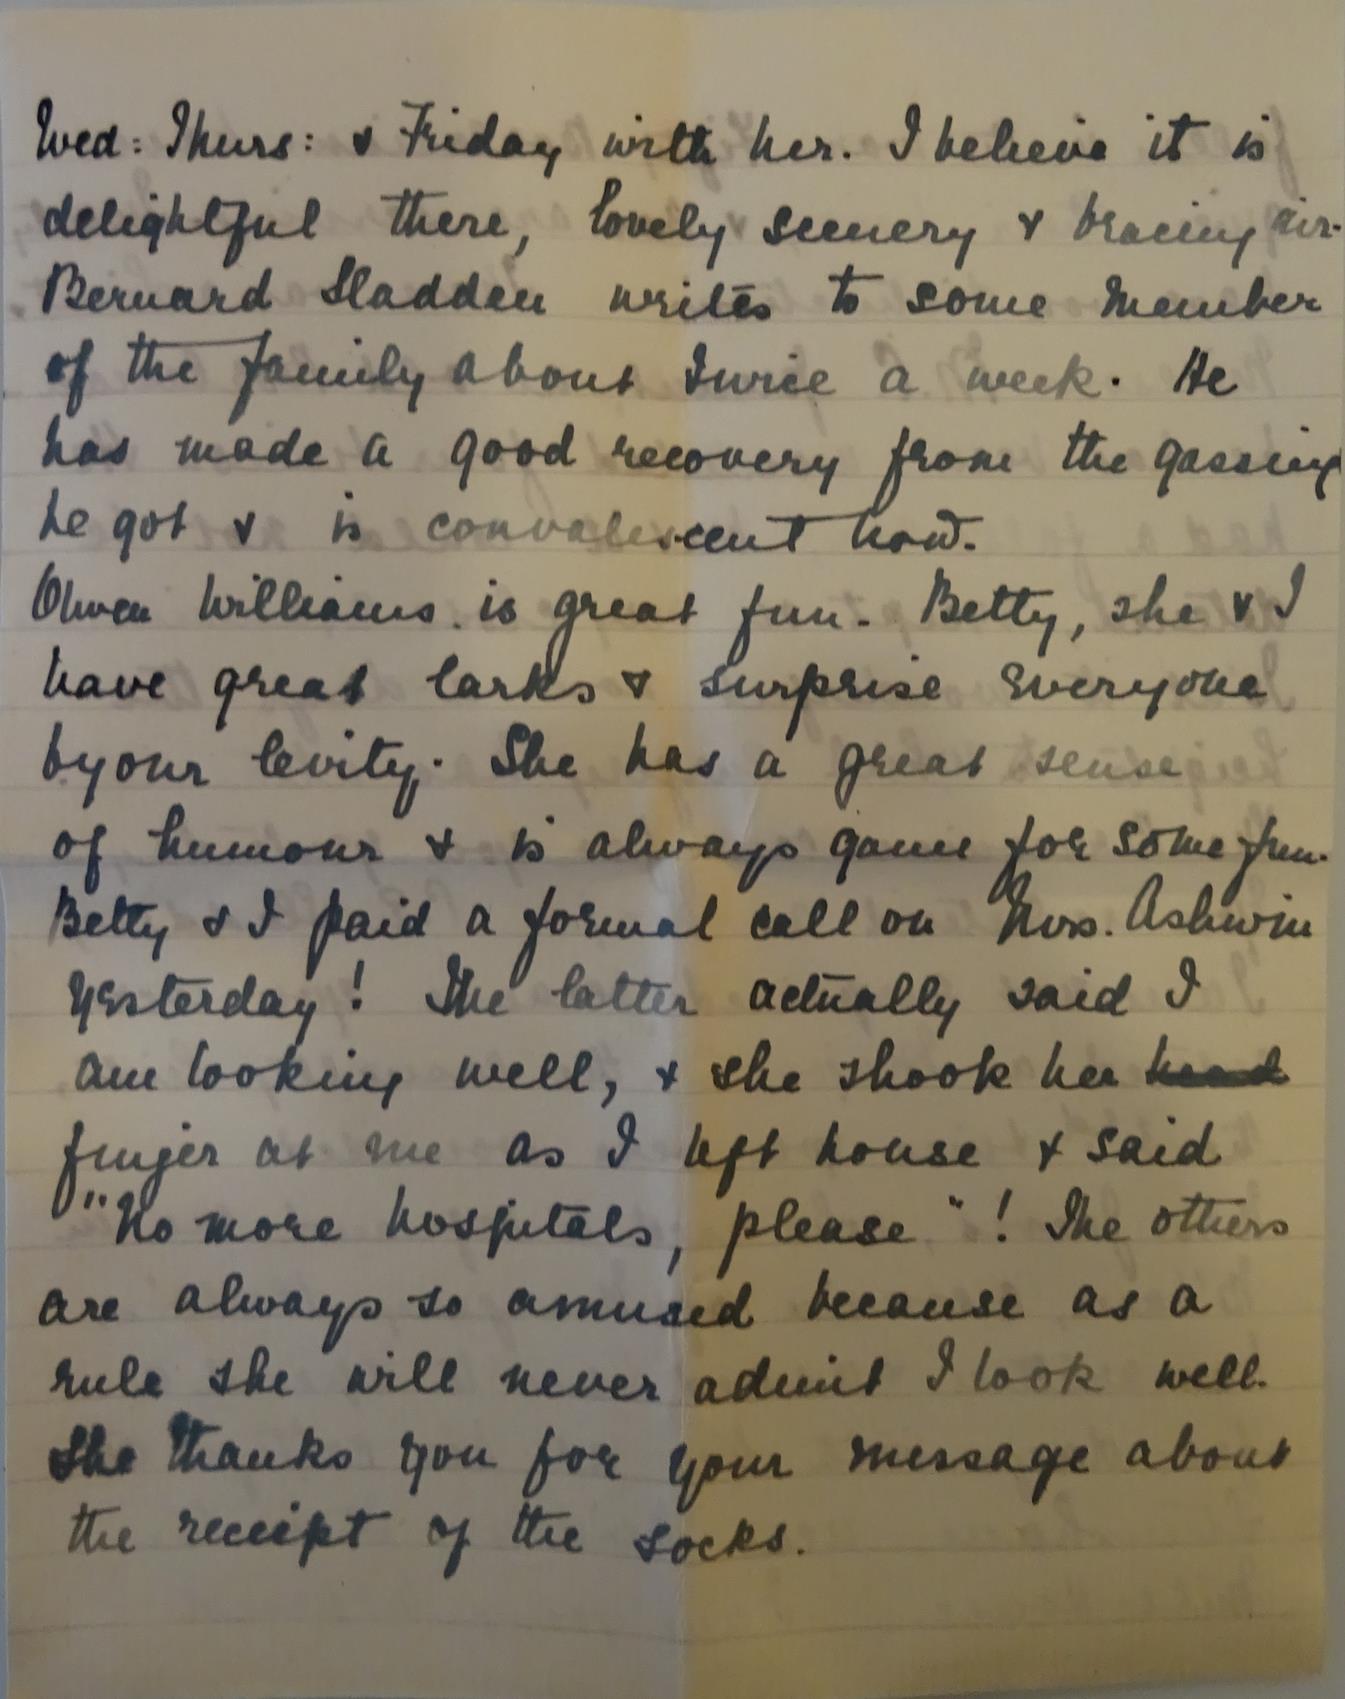 Wed: Thurs: & Friday with her. I believe it is
delightful there, lovely scenery & bracing air.
Bernard Sladden writes to some member
of the family about twice a week. He
has made a good recovery from the gassing
he got & is convalescent now.
Olwen Williams is great fun. Betty, she & I
have great larks & surprise everyone
by our levity. She has a great sense
of humour & is always game for some fun.
Betty & I paid a formal call on Mrs. Ashwin
yesterday! The latter actually said I
am looking well, & she shook her head
finger at me as I left house & said
"No more hospitals, please"! The others
are always so amused because as a
rule she will never admit I look well.
She thanks you for your message about
the receipt of the socks.